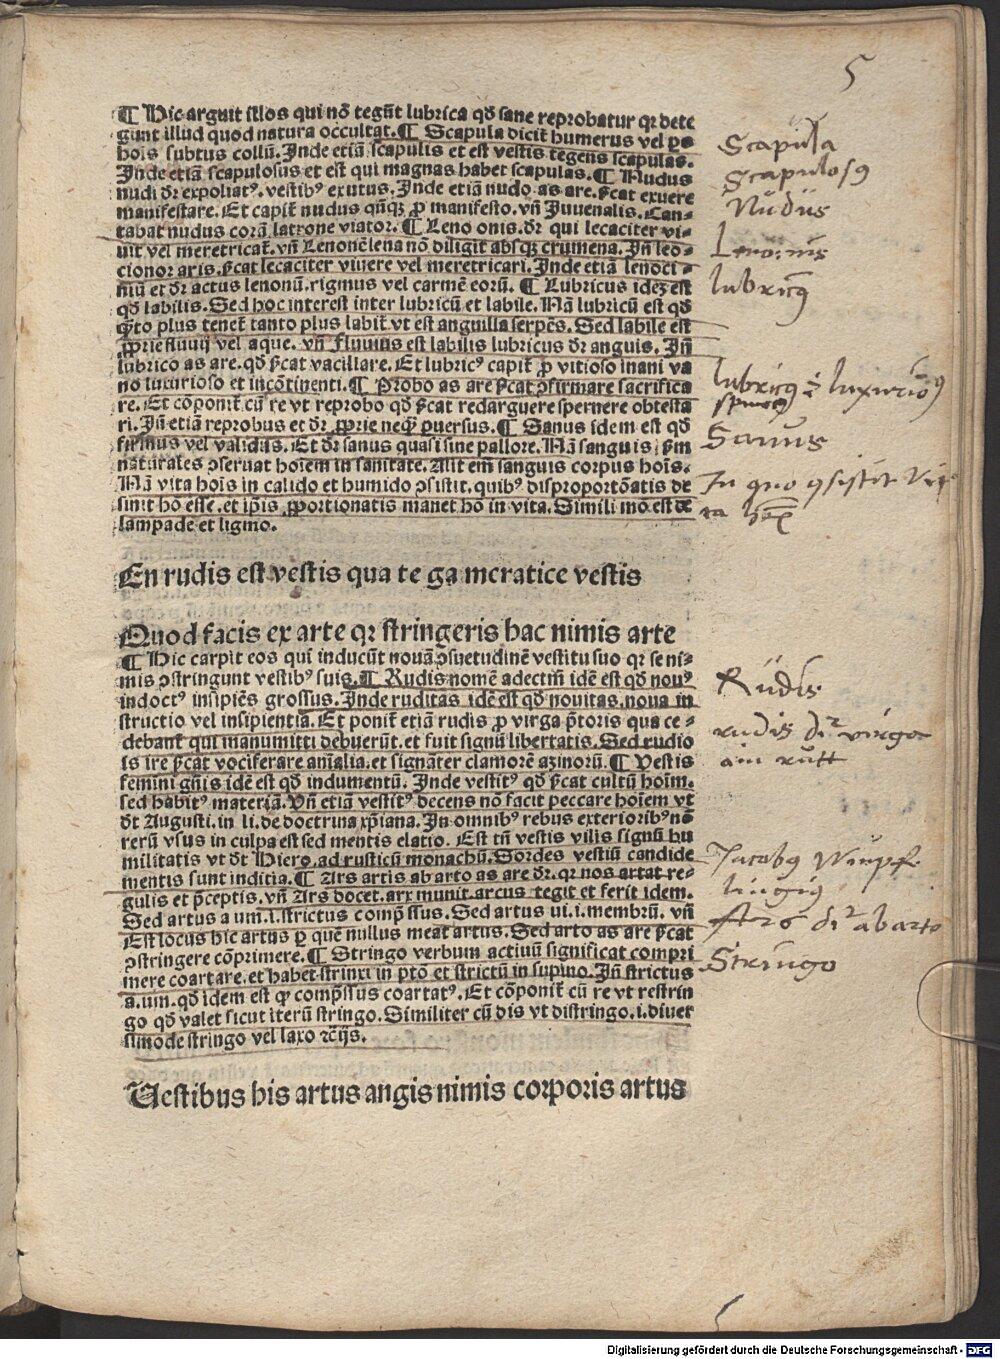 5
¶ Hic arguit illos qui nō tegūt lubrica qd sane reprobatur qꝛ dete
gunt illud quod natura occultat. ¶ Scapula dicit humerus vel ps
hois subtus collū. Inde etiā scapulis et est vestis tegens scapulas.
Inde etiā scapulosus et est qui magnas habet scapulas. ¶ Nudus
nudi dr expoliatꝰ. vestibꝰ exutus. Inde etiā nudo as are. ſcat exuere
manifestare. Et capit nudus qñqꝫ ꝓ manifesto. vñ Juuenalis. Can-
tabat nudus corā latrone viator. ¶ Leno onis. dr qui lecaciter vi-
uit vel meretricat. vñ Lenonē lena nō diligit absqꝫ crumena. Inde leo-
cionor aris. ſcat lecaciter viuere vel meretricari. Inde etiā lenoci-
niū et dr actus lenonū. rigmus vel carmē eorū. ¶ Lubricus idē est
qd labilis. Sed hoc interest inter lubricū et labile. Nā lubricū est qd
q̄to plus tenet tanto plus labit vt est anguilla serpēs. Sed labile est
ꝓprie fluuij vel aque. vñ Fluuius est labilis lubricus dr anguis. Iñ
lubrico as are. qd ſcat vacillare. Et lubricꝰ capit ꝓ vitioso inani va
no luxurioso et incōtinenti. ¶ Probo as are ſcat ꝯfirmare sacrifica
re. Et cōponit cū re vt reprobo qd ſcat redarguere spernere obtesta
ri. Iñ etiā reprobus et dr ꝓprie neqꝫ ꝑuersus. ¶ Sanus idem est qd
firmus vel validus. Et dr sanus quasi sine pallore. Nā sanguis ẜm
naturales ꝯseruat hoiem in sanitate. Alit em sanguis corpus hois.
Nā vita hois in calido et humido ꝯsistit. quibꝰ disproportōatis de
sinit hō esse. et ipis ꝓportionatis manet hō in vita. Simili mō est de
lampade et ligno.
En rudis est vestis qua te ga meratice vestis
Quod facis ex arte qꝛ stringeris hac nimis arte
¶ Hic carpit eos qui inducūt nouā ꝯsuetudinē vestitu suo qꝛ se ni-
mis ꝯstringunt vestibꝰ suis. ¶ Rudis nomē adectiū idē est qd nouꝰ
indoctꝰ insipiēs grossus. Inde ruditas idē est qd nouitas. noua in
structio vel insipientia. Et ponit etiā rudis ꝓ virga p̄toris qua ce-
debant qui manumitti debuerūt. et fuit signū libertatis. Sed rudio
is ire ſcat vociferare aīalia. et signāter clamorē azinorū. ¶ Vestis
feminini gnis idē est qd indumentū. Inde vestitꝰ qd ſcat cultū hoim.
sed habitꝰ materiā. Vñ etiā vestitꝰ decens nō facit peccare hoiem vt
dt Augusti. in li. de doctrina xp̄iana. In omnibꝰ rebus exterioribꝰ nō
rerū vsus in culpa est sed mentis elatio. Est tn vestis vilis signū hu
militatis vt dt Hiero. ad rusticū monachū. Sordes vestiū candide
mentis sunt inditia. ¶ Ars artis ab arto as are dr. qꝛ nos artat re-
gulis et p̄ceptis. vñ Ars docet. arx munit. arcus tegit et ferit idem.
Sed artus a um. i. strictus comp̄ssus. Sed artus ui. i. membrū. vñ
Est locus hic artus ꝑ quē nullus meat artus. Sed arto as are ſcat
ꝯstringere cōprimere. ¶ Stringo verbum actiuū significat compri
mere coartare. et habet strinxi in ptō et strictū in supino. Iñ strictus
a. um. qd idem est qd comp̄ssus coartatꝰ. Et cōponit cū re vt restrin
go qd valet sicut iterū stringo. Similiter cū dis vt distringo. i. diuer
simode stringo vel laxo rc̄ijs.
Uestibus his artus angis nimis corporis artus
Scapula
Scapulosꝰ
Nudus
Leno: nis
lubricꝰ
lubricꝰ luxuriosꝰ
Sanus
In quo ꝯsistit vi
ta
Rudis
rudis dr virga
ain rutt
Jacobꝰ Wimpfe
lingiꝰ
Ars dr ab arto
Stringo
Digitalisierung gefördert durch die Deutsche Forschungsgemeinschaft - DFG